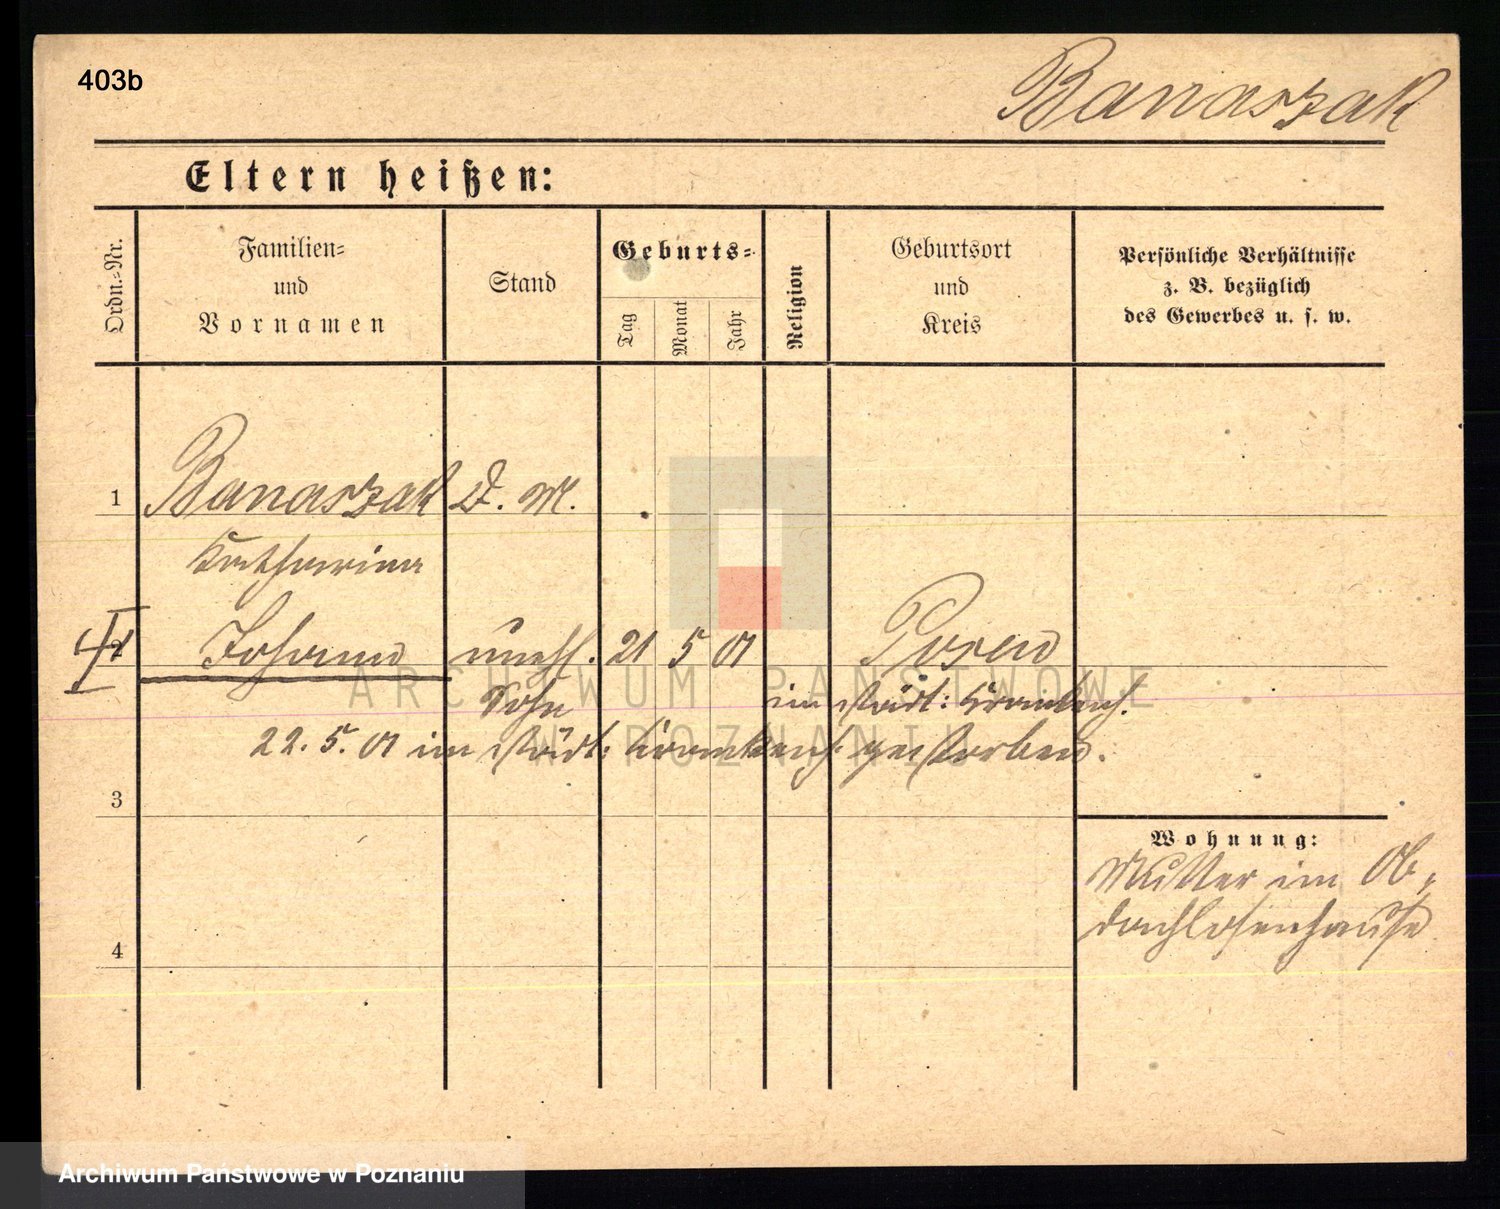 403b
Banaszak
Eltern heißen:
Ordn.-Nr.
Familien-
und
Vornamen
Stand
Geburts-
Tag
Monat
Jahr
Religion
Geburtsort
und
Kreis
Persönliche Verhältnisse
z. B. bezüglich
des Gewerbes u. s. w.
1 Banaszak D. M.
Katharina
I Johann unehl. 21 5 01 Posen
Sohn im städt: Krankenh.
22. 5. 01 im städt: Krankenh. gestorben.
3
Wohnung:
Mutter im Ob-
dachlosenhause
4
ARCHIWUM PAŃSTWOWE
W POZNANIU
Archiwum Państwowe w Poznaniu